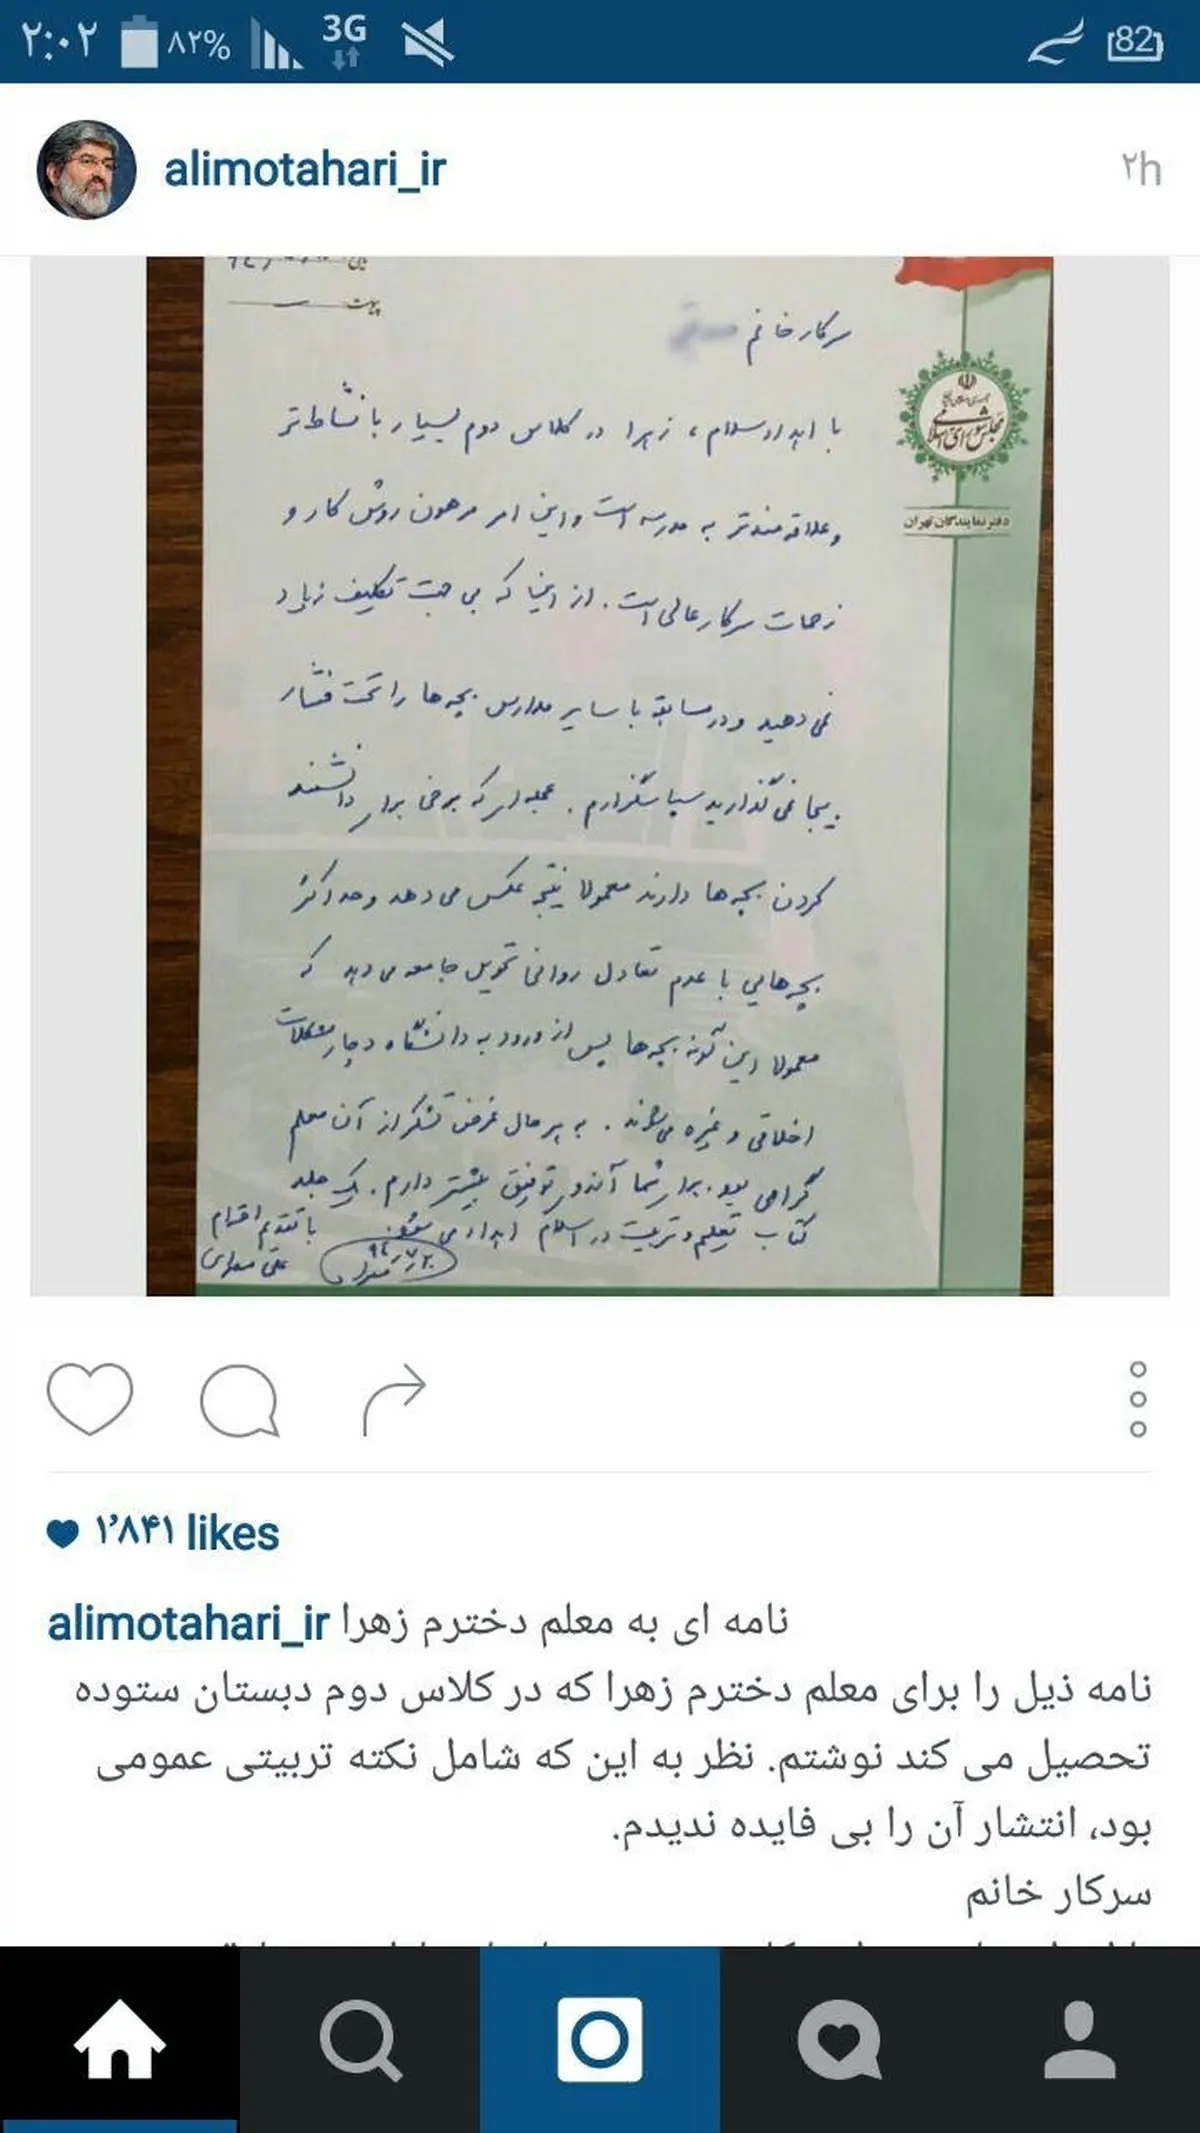 ۲:۰۲ ۸۲% 3G 82
alimotahari_ir ۲h
پیوست
سرکار خانم
با اهداء سلام، زهرا در کلاس دوم بسیار با نشاط تر
و علاقه مندتر به مدرسه است و این امر مرهون روش کار و
زحمات سرکار عالی است. از اینکه بی جهت تکلیف زیاد
نمی دهید و در مسابقه با سایر مدارس بچه ها را تحت فشار
بیجا نمی گذارید سپاسگزارم. عجله ای که برخی برای دانشمند
کردن بچه ها دارند معمولا نتیجه عکس می دهد و حداکثر
بچه هایی با عدم تعادل روانی تحویل جامعه می دهد که
معمولا این گونه بچه ها پس از ورود به دانشگاه دچار مشکلات
اخلاقی و غیره می شوند. به هر حال غرض تشکر از آن معلم
گرامی بود. برای شما آرزوی توفیق بیشتر دارم. یک جلد
کتاب تعلیم و تربیت در اسلام اهداء می شود.
با تقدیم احترام
علی مطهری
جمهوری اسلامی ایران
مجلس شورای اسلامی
دفتر نمایندگان تهران
۱٬۸۴۱ likes
alimotahari_ir نامه ای به معلم دخترم زهرا
نامه ذیل را برای معلم دخترم زهرا که در کلاس دوم دبستان ستوده
تحصیل می کند نوشتم. نظر به این که شامل نکته تربیتی عمومی
بود، انتشار آن را بی فایده ندیدم.
سرکار خانم